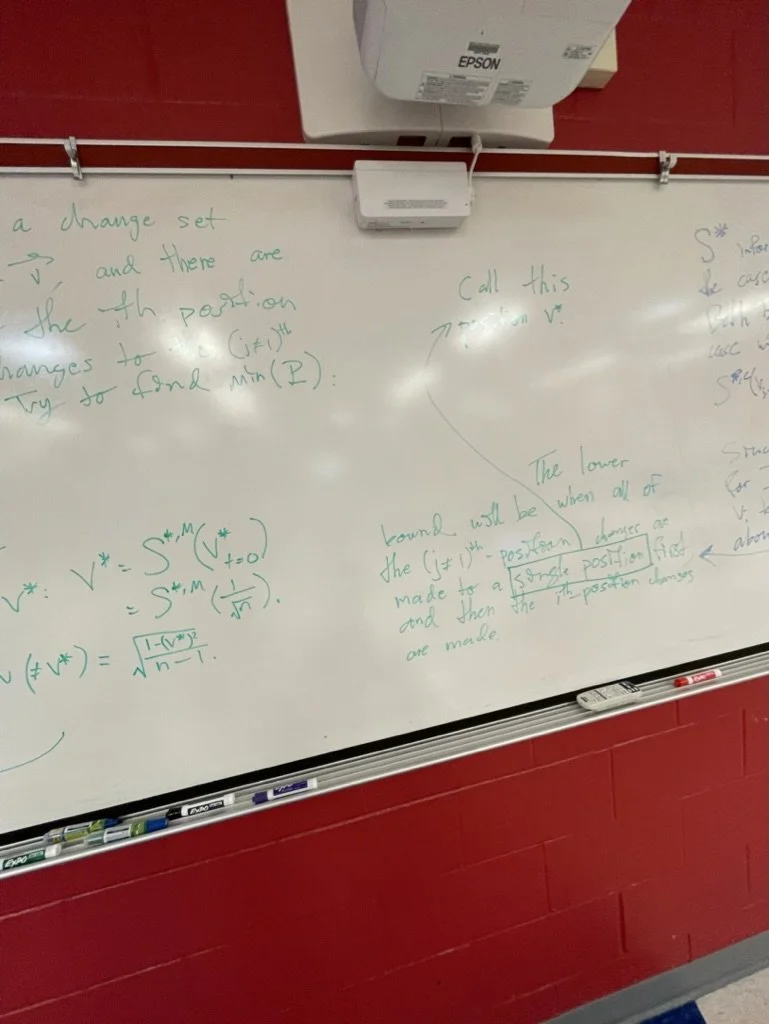 EPSON
a change set
v, and there are
the ith position
changes to the (j≠i)th
Try to find min(P):
v*: v* = S*,M(v* t=0)
= S*,M(1/√n).
v(≠v*) = √((1-(v*)²)/(n-1)).
Call this
position v*.
The lower
bound will be when all of
the (j≠i)th-position changes are
made to a single position first
and then the ith-position changes
are made.
S*
the case
case
S*
for
above
EXPO
EXPO
EXPO